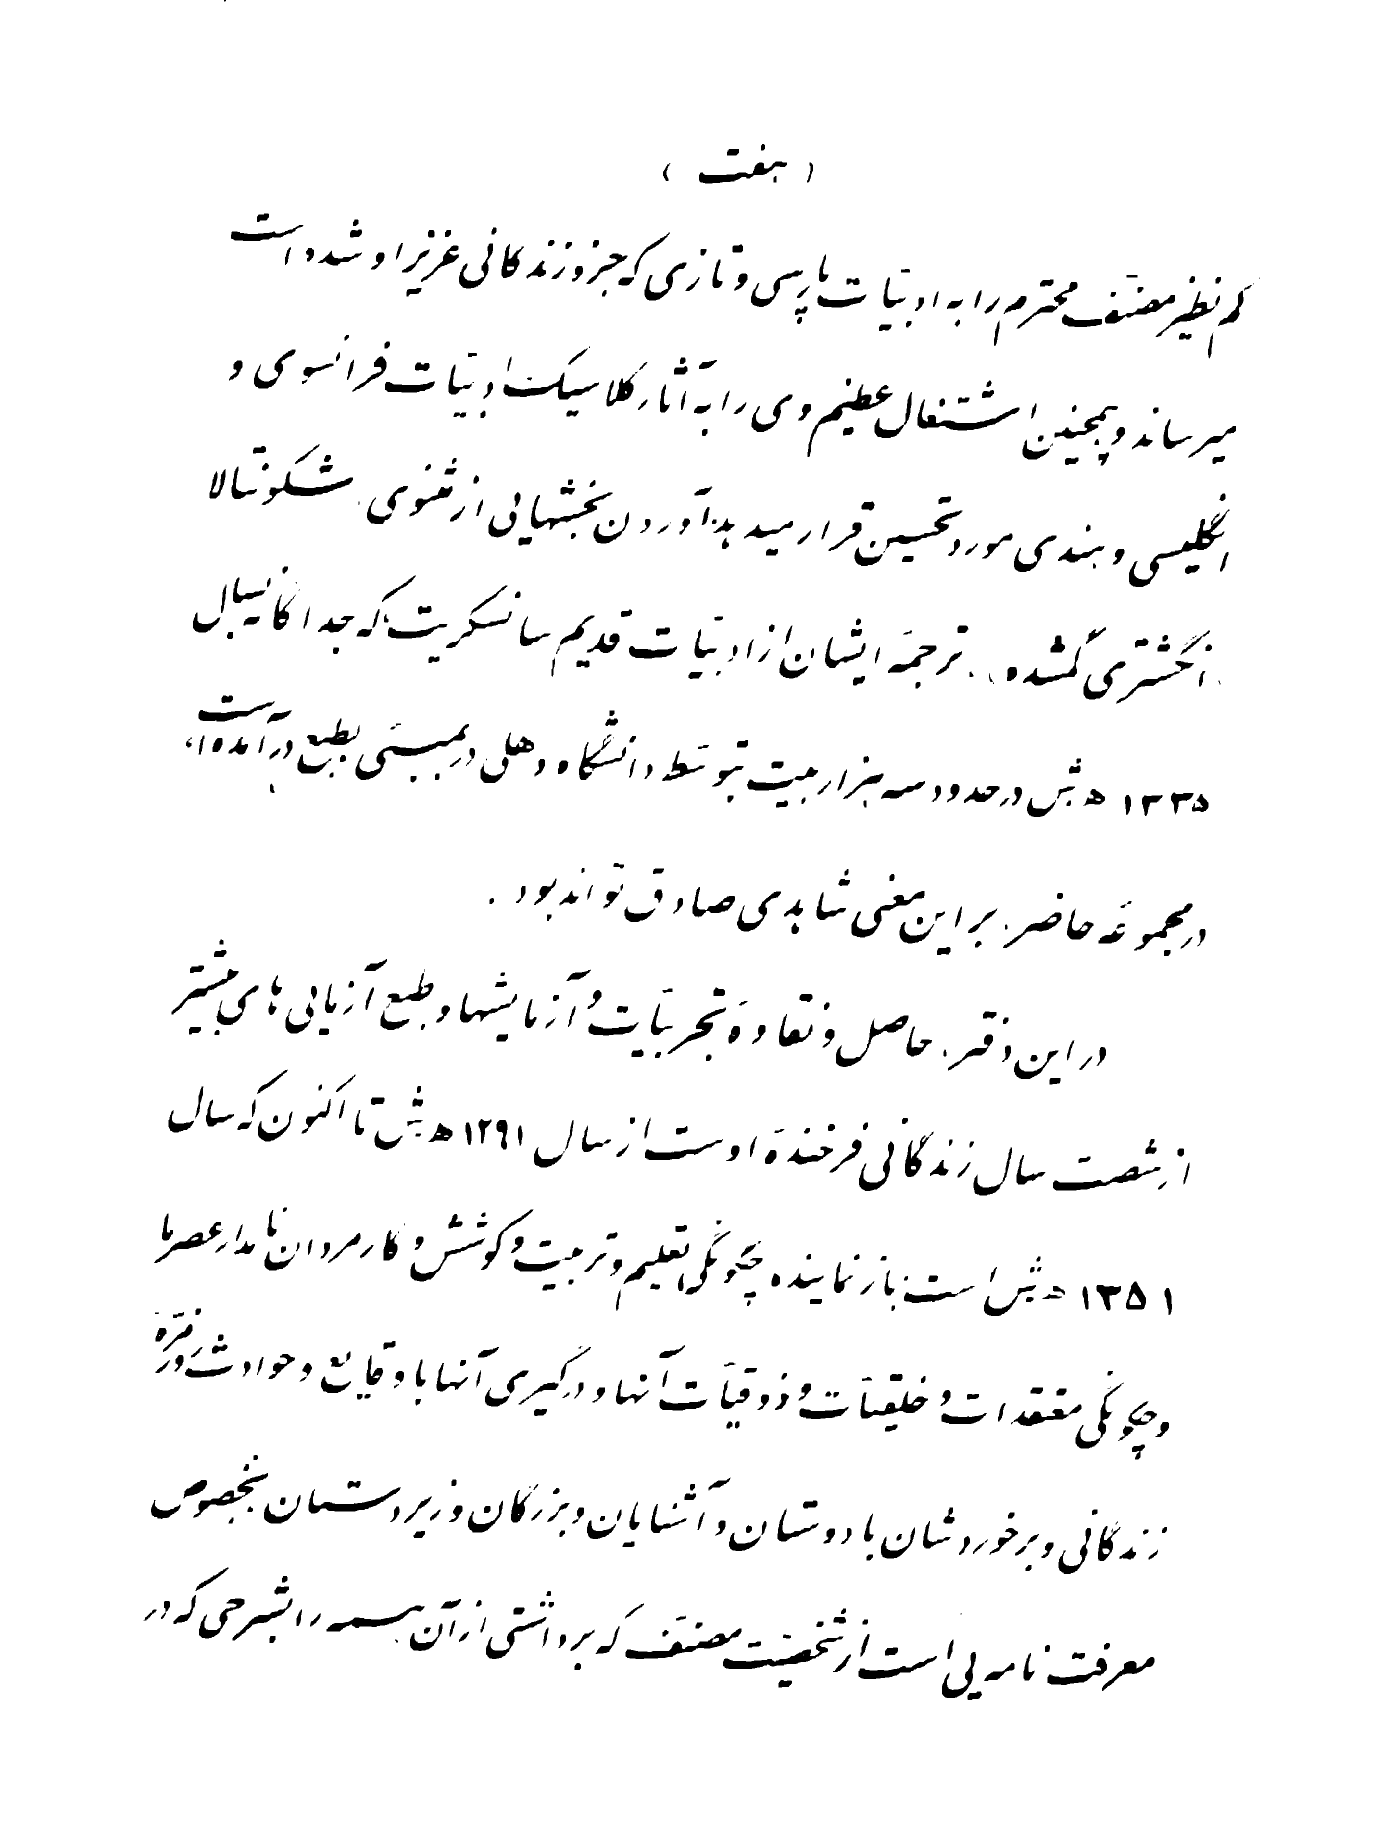 ( هفت )
کم نظیر مصنّف محترم را به ادبیّات پارسی و تازی که جزو زندگانی عزیز او شده است
میرساند و همچنین اشتغال عظیم وی را به آثار کلاسیک ادبیّات فرانسوی و
انگلیسی و هندی مورد تحسین قرار میدهد آوردن بخشهایی از مثنوی . شکونتالا
. انگشتری گمشده .. ترجمهٔ ایشان از ادبیّات قدیم سانسکریت که جداگانه سال
۱۳۳۵ ه ش در حدود سه هزار بیت بتوسّط دانشگاه دهلی در بمبئی بطبع درآمده است،
در مجموعهٔ حاضر . بر این معنی شاهدی صادق تواند بود .
در این دفتر . حاصل و نقاوهٔ تجربیّات و آزمایشها و طبع آزمایی های بیشتر
از شصت سال زندگانی فرخندهٔ اوست از سال ۱۲۹۱ ه ش تا اکنون که سال
۱۳۵۱ ه ش است باز نماینده چگونگی تعلیم و تربیت و کوشش و کار مردان نامدار عصر ما
و چگونگی معتقدات و خلقیّات و ذوقیّات آنها و درگیری آنها با وقایع و حوادث روزمرّه
زندگانی و برخوردشان با دوستان و آشنایان و بزرگان و زیردستان بخصوص
معرفت نامه یی است از شخصیّت مصنّف که برداشتی از آن همه را بشرحی که در